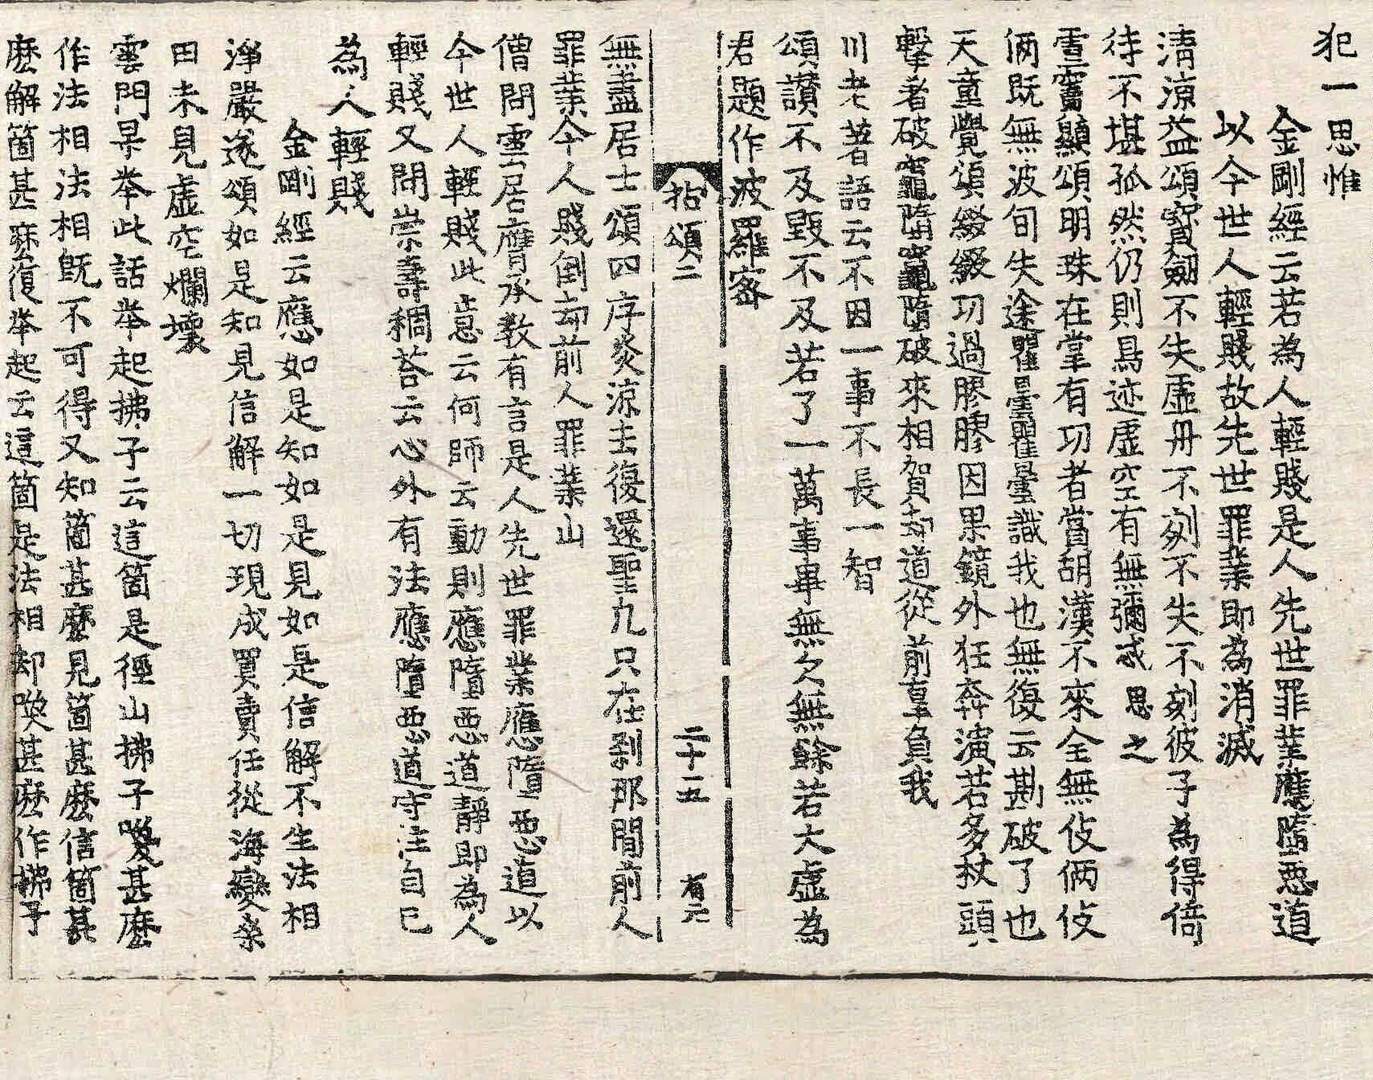 犯一思惟
金剛經云若為人輕賤是人先世罪業應墮惡道
以今世人輕賤故先世罪業即為消滅
清涼益頌寶劒不失虛舟不刻不失不刻彼子為得倚
待不堪孤然仍則鳥迹虛空有無彌忒思之
雪竇顯頌明珠在掌有功者賞胡漢不來全無伎倆伎
倆既無波旬失途瞿曇瞿曇識我也無復云勘破了也
天童覺頌綴綴功過膠膠因果鏡外狂奔演若多杖頭
擊者破竈墮竈墮破來相賀却道從前辜負我
川老著語云不因一事不長一智
頌讃不及毀不及若了一萬事畢無欠無餘若大虛為
君題作波羅密
拈頌二
二十五
有元
無盡居士頌四序炎涼去復還聖凡只在刹那間前人
罪業今人賤倒却前人罪業山
僧問雲居膺承敎有言是人先世罪業應墮惡道以
今世人輕賤此意云何師云動則應墮惡道靜即為人
輕賤又問崇壽稠荅云心外有法應墮惡道守住自己
為人輕賤
金剛經云應如是知如是見如是信解不生法相
淨嚴遂頌如是知見信解一切現成買賣任從海變桑
田未見虛空爛壞
雲門杲举此話举起拂子云這箇是徑山拂子喚甚麽
作法相法相旣不可得又知箇甚麽見箇甚麽信箇甚
麽解箇甚麽復举起云這箇是法相却喚甚麽作拂子